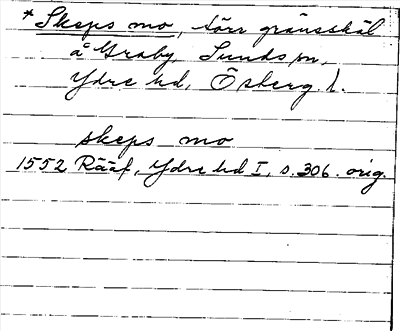 * Skeps mo, torr gränsskäl
å Graby, Sunds sn,
Ydre hd, Österg. l.
skeps mo
1552 Rääf, Ydre hd I, s. 306. orig.